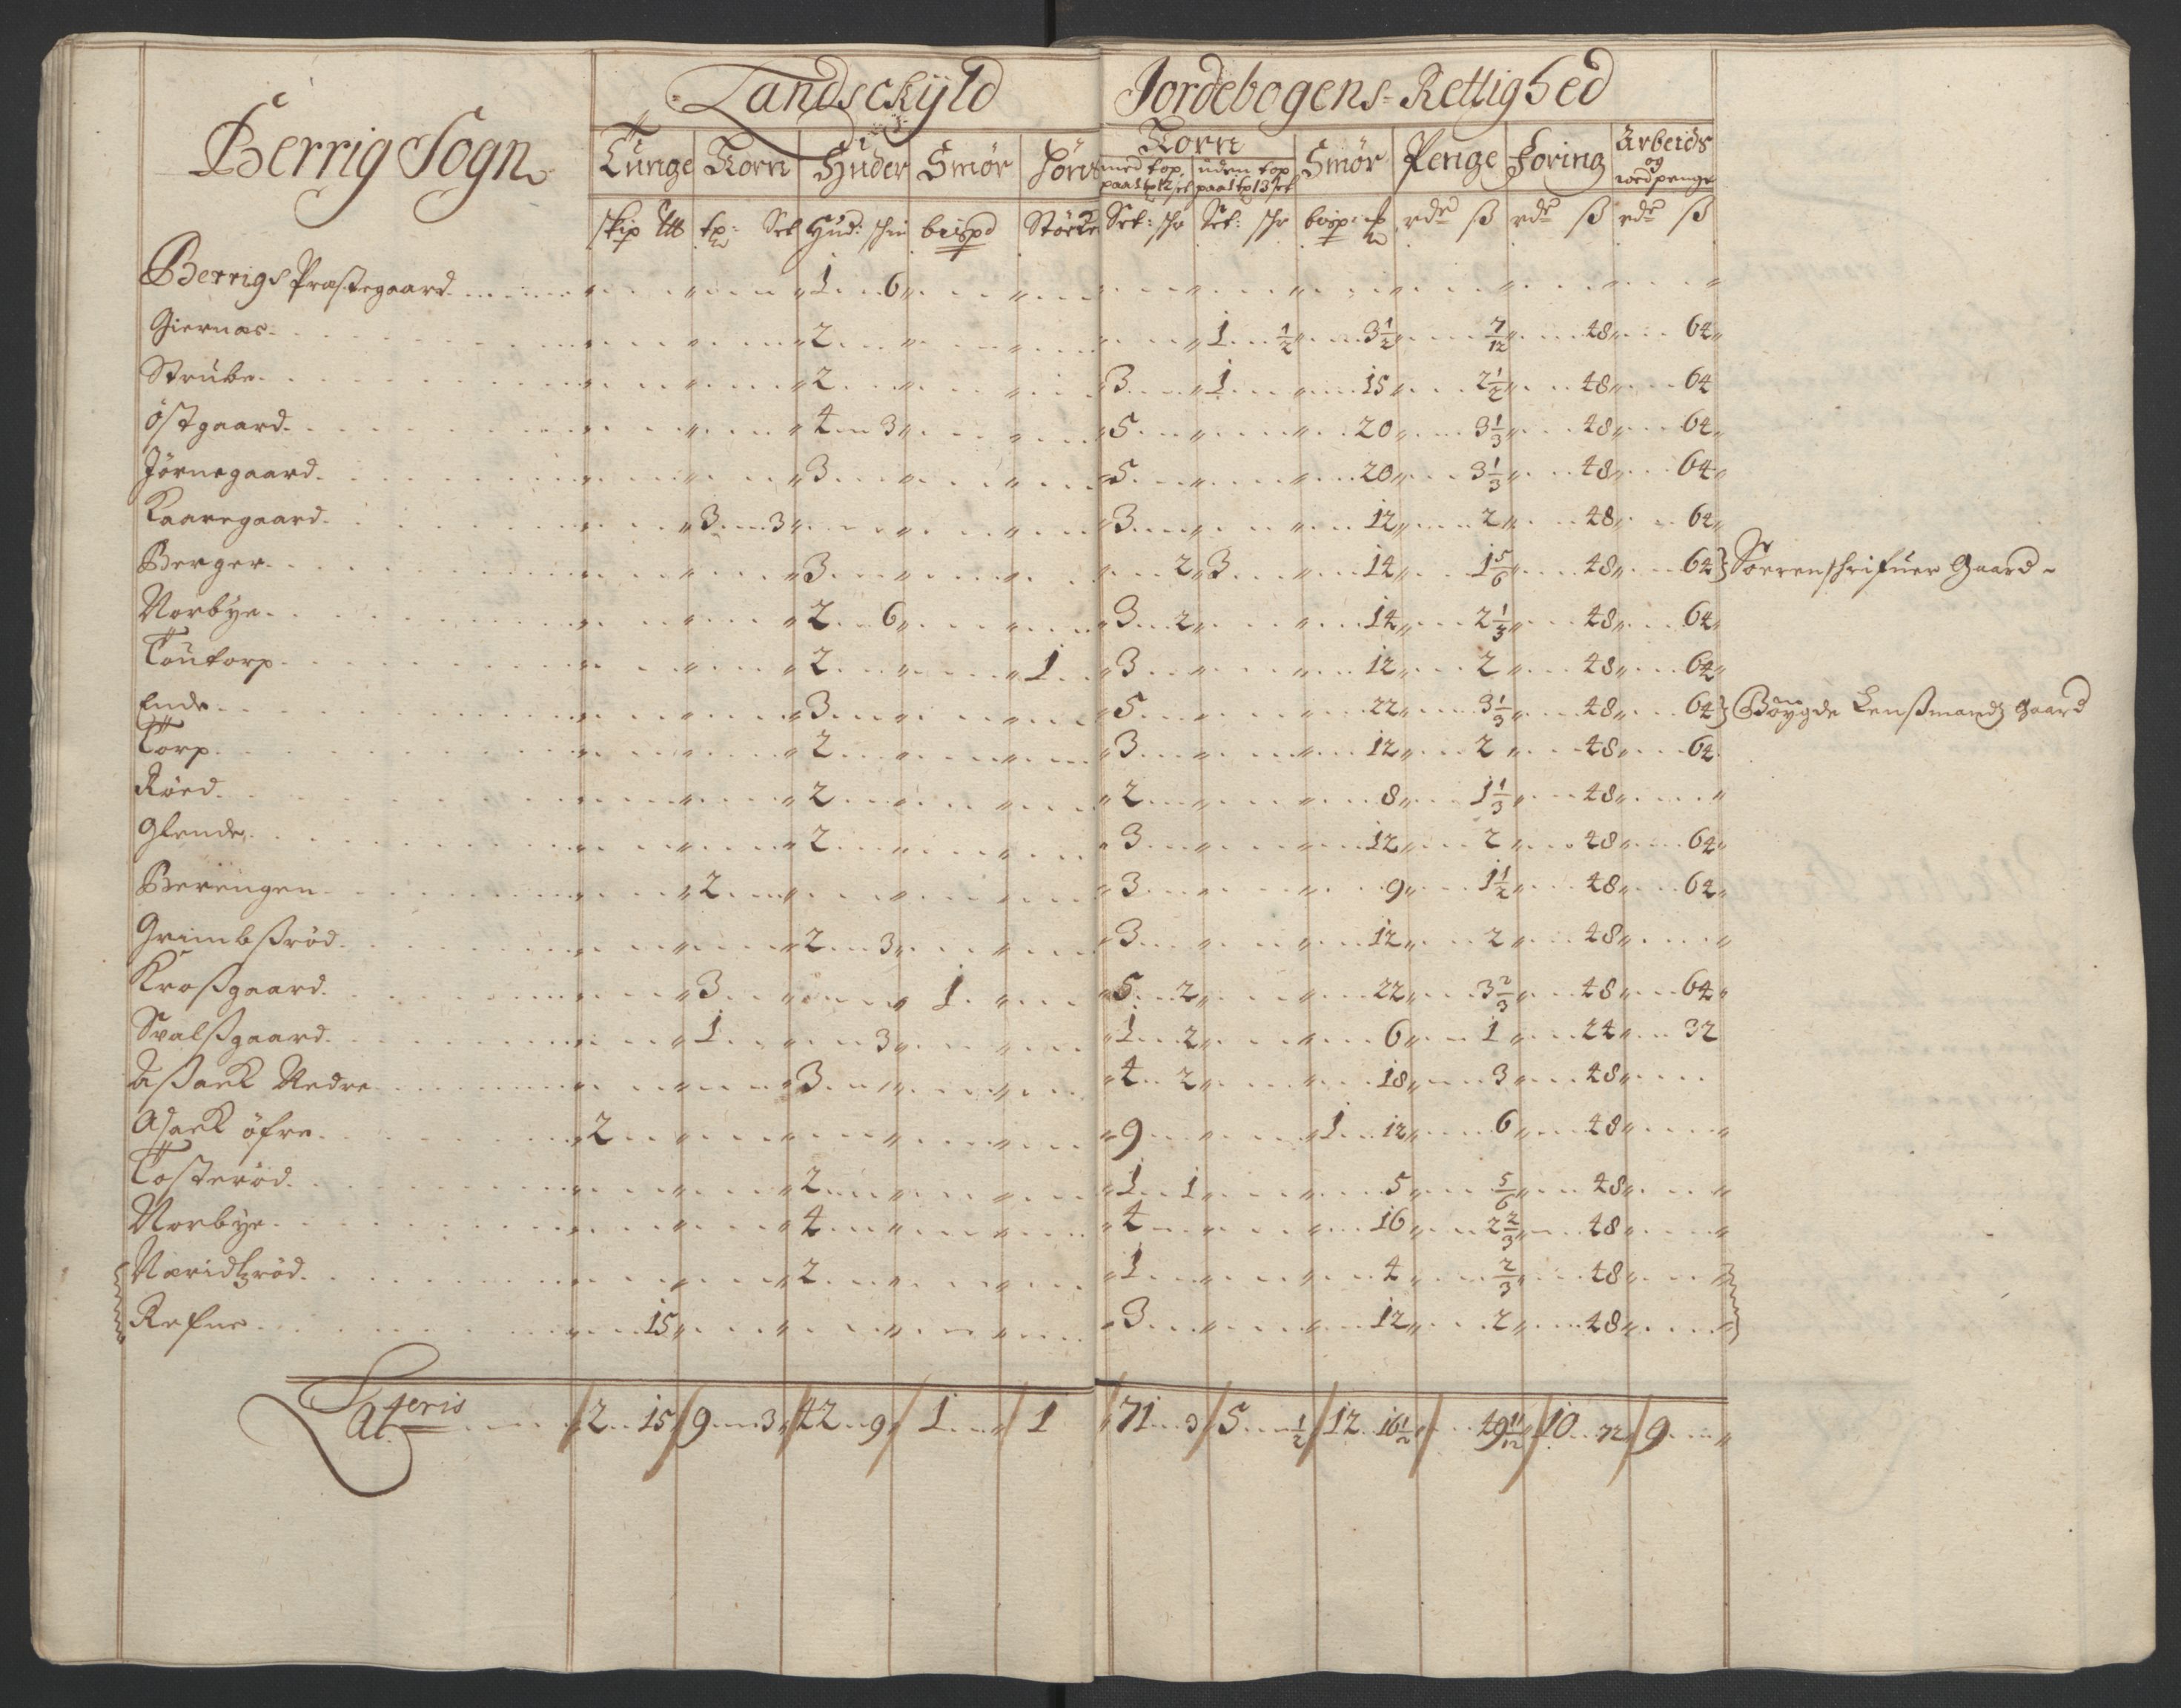 Landsckÿld Jordebogens Rettighed
Berrig Sogn
Tunge Korn Huder Smør Korn Smør Penge Foring Arbeids og wedpenge
med top paa 1 tp 12 set uden top paa 1 tp 13 set
skip ltt tp: Set Hud: schin beispd Støcke Set: schr Set: schr beisp: rdr ß rdr ß rdr ß
Berrigs Præstegaard 1 6
Giernæs 2 1 1/2 3 1/2 7/12 48 64
Strübe 2 3 1 15 2 1/2 48 64
Østgaard 4 3 5 20 3 1/3 48 64
Jørnegaard 3 5 20 3 1/3 48 64
Kaaregaard 3 3 3 12 2 48 64
Berger 3 2 3 14 1 5/6 48 64 } Soerenschrifuer Gaard
Norbÿe 2 6 3 2 14 2 1/3 48 64
Toutorp 2 1 3 12 2 48 64
Ende 3 5 22 3 1/3 48 64 } Bøÿgde Lensßmandz gaard
Torp 2 3 12 2 48 64
Røed 2 2 8 1 1/3 48
Glende 2 3 12 2 48 64
Berengen 2 3 9 1 1/2 48 64
Grimbßrød 2 3 3 12 2 48
Kroßgaard 3 1 5 2 22 3 2/3 48 64
Svalßgaard 1 3 1 2 6 1 24 32
Aßack Nedre 3 4 2 18 3 48
Asack øfre 2 9 1 12 6 48
Tosterød 2 1 1 5 5/6 48
Norbÿe 4 4 16 2 2/3 48
Næridtzrød 2 1 4 2/3 48
Refne 15 3 12 2 48
Lateris 2 15 9 3 42 9 1 1 71 3 5 1/2 12 16 1/2 49 11/12 10 72 9